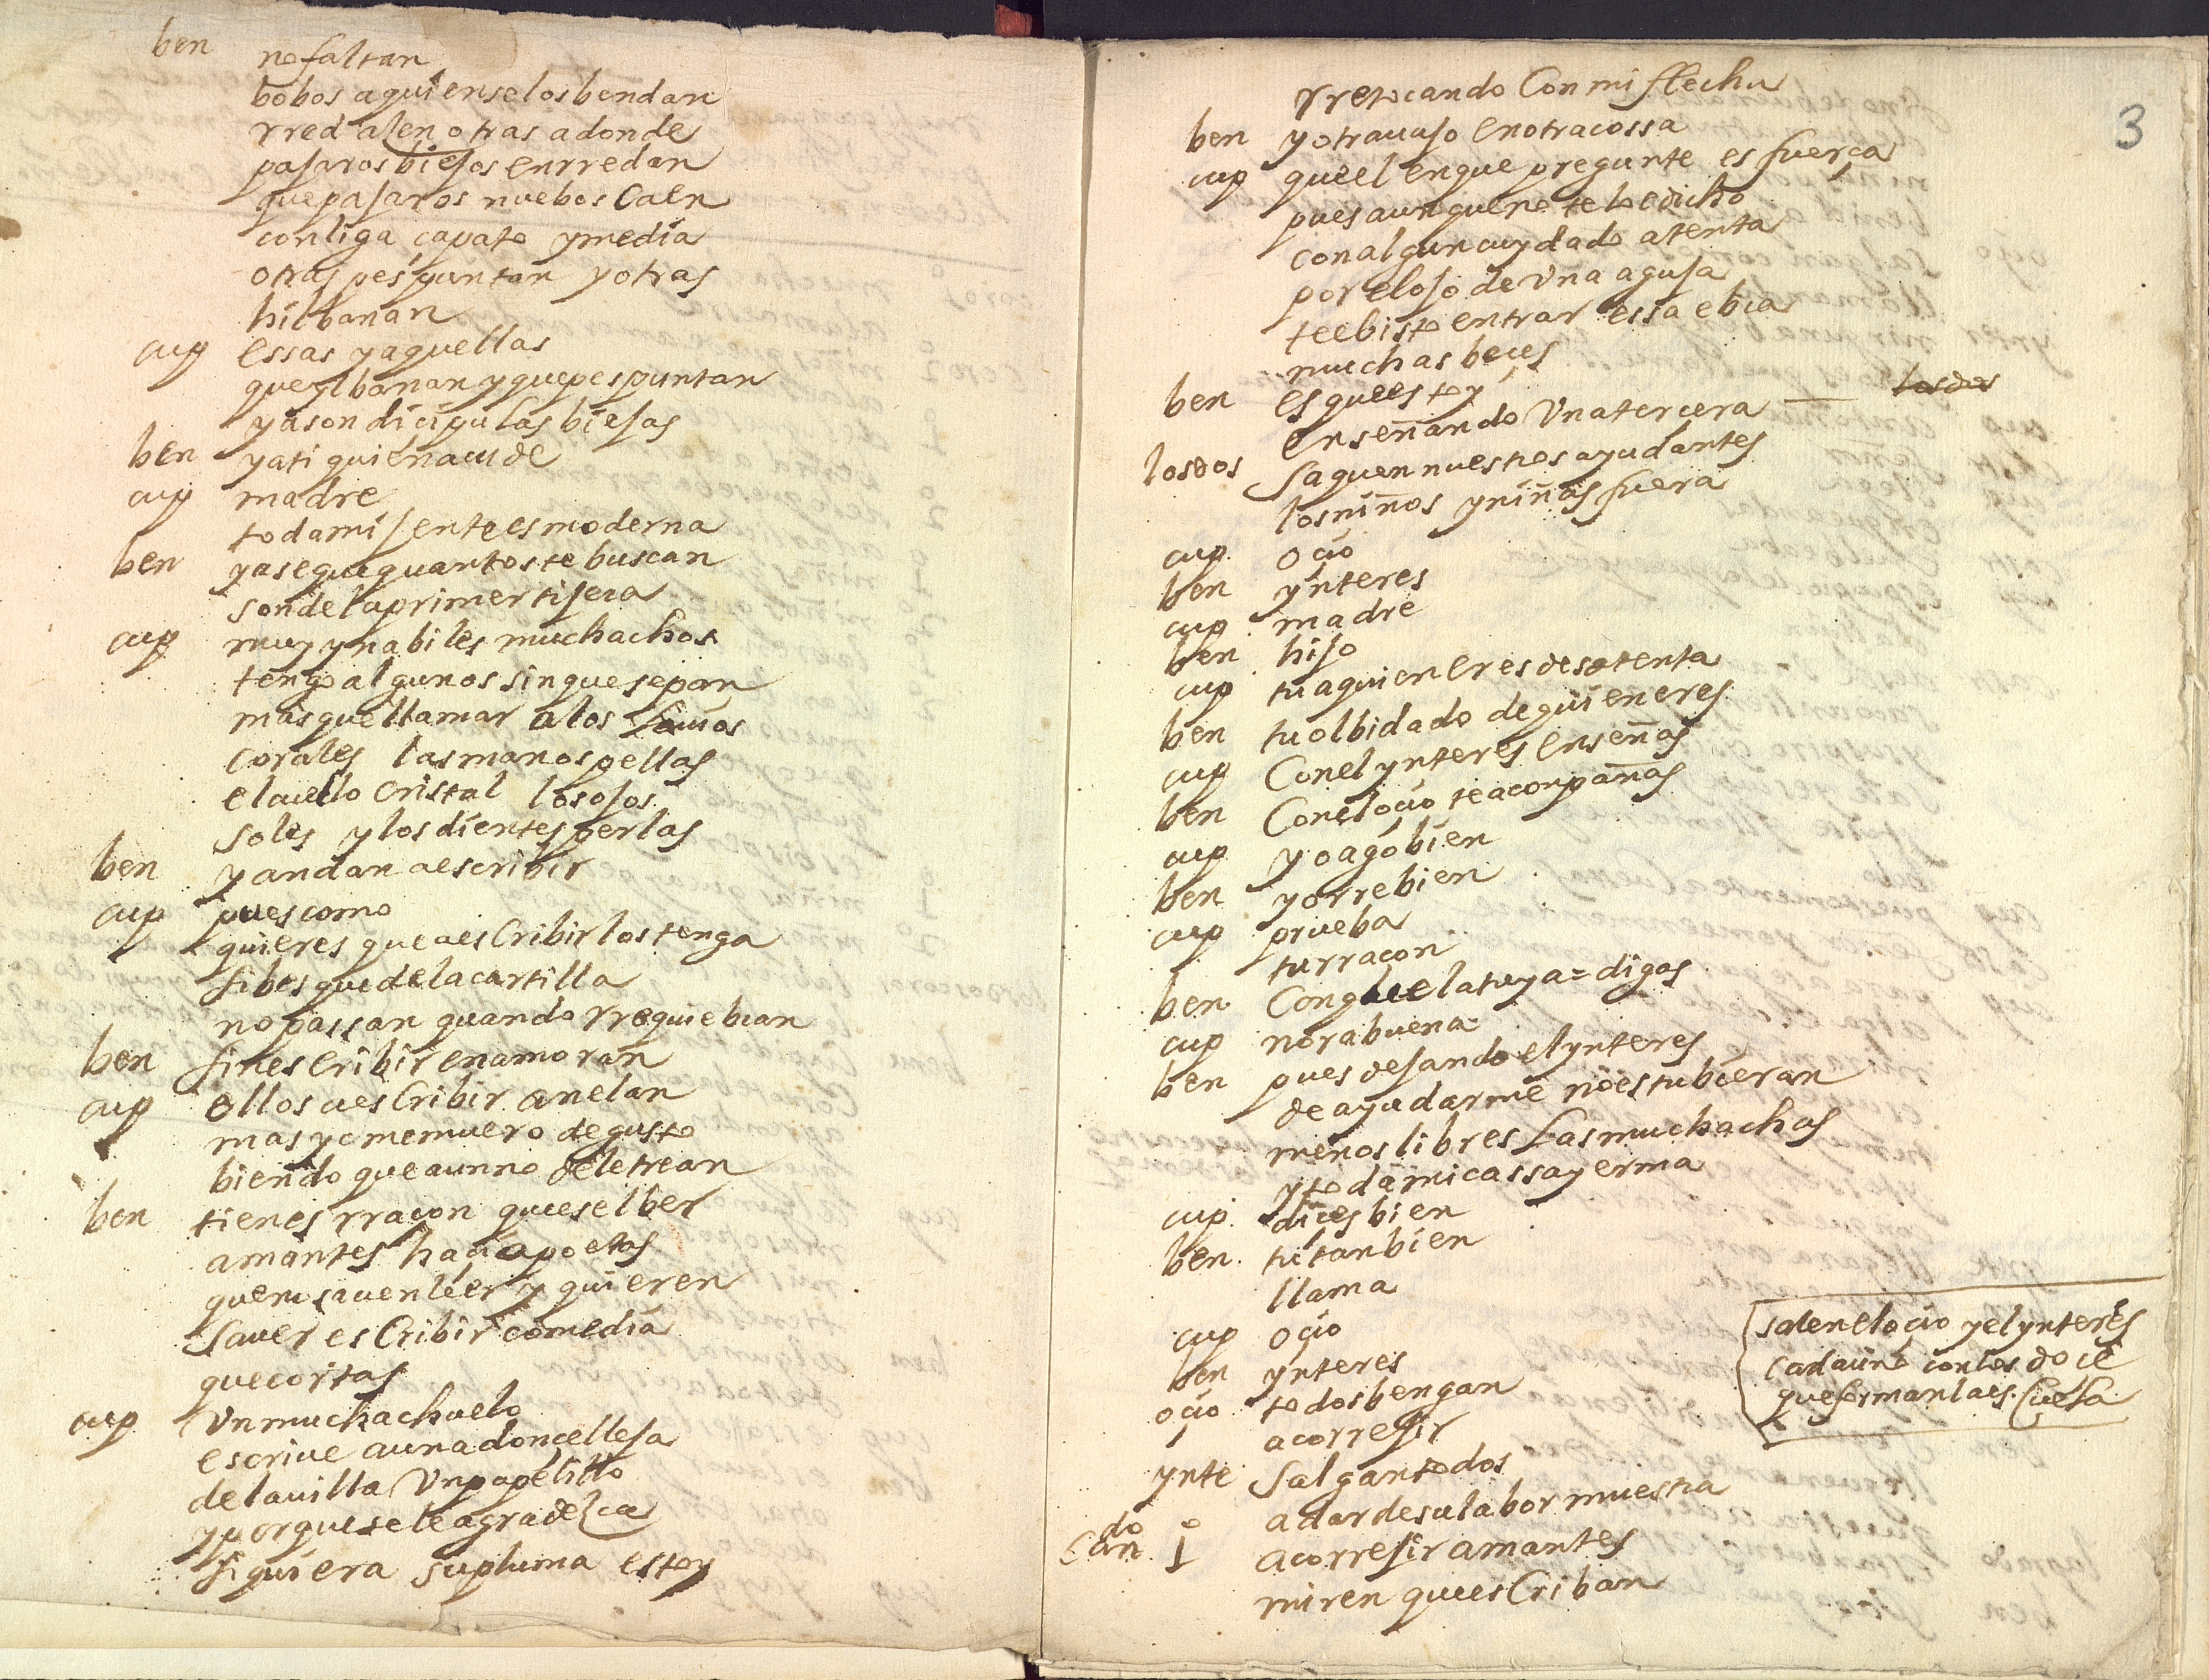 ben no faltan
bobos a quien se los bendan
rred alen otras a donde
pajaros biejos enrredan
que pajaros nuebos Caen
con liga çapato y media
otras pespuntan y otras
hilbanan
cup essas y aquellas
que ylbanan y que pespuntan
ya son diçipulas biejas
ben y a ti quien acude
cup madre
toda mi jente es moderna
ben y a se que quantos te buscan
son de la primer tijera
cup muy ynabiles muchachos
tengo algunos sin que sepan
mas que llamar a los lauios
corales las manos pellas
el cuello cristal los ojos
soles y los dientes perlas
ben y andan a escribir
cup pues como
quieres que a esCribir los tenga
si bes que de la cartilla
no passan quando rrequiebran
ben sin esCribir enamoran
cup ellos a esCribir anelan
mas yo me muero de gusto
biendo que aun no deletrean
ben tienes rraçon que es el ber
amantes haçia poetas
que no sauen leer y quieren
sauer esCribir comedia
que cortas
cup Vn muchachuelo
escriue a una donçelleja
de la uilla Vn papelillo
y porque se le agradezca
siquiera su pluma estoy
3
rretocando Con mi flecha
ben y otra uaso en otra cossa
cup que el en que pregunte es fuerça
pues aunque no te lo e dicho
con algun cuydado atenta
por el ojo de Vna aguja
te e bisto entrar essa ebra
muchas beces
ben es que estoy
enseñando Vna tercera — los dos
los dos Saquen nuestros ayudantes
los niños y niñas fuera
cup oçio
ben ynteres
cup madre
ben hijo
cup tu a quien eres desatenta
ben tu olbidado de quien eres
cup Con el ynteres enseñas
ben Con el oçio te aconpañas
cup yo ago bien
ben yo rrebien
cup prueba
tu rraçon
ben Con que la tuya = digas
cup norabuena
ben pues dejando el ynteres
de ayudarme no estubieran
menos libres Las muchachas
y toda mi cassa yerma
cup dices bien
ben tu tanbien
llama
cup oçio
ben ynteres
oçio todos bengan
a correjir
ynte Salgan todos
a dar de su labor muestra
salen el oçio y el ynteres
cada uno con los doce
que forman la esCuela
Can do 1º a correjir amantes
miren que esCriban